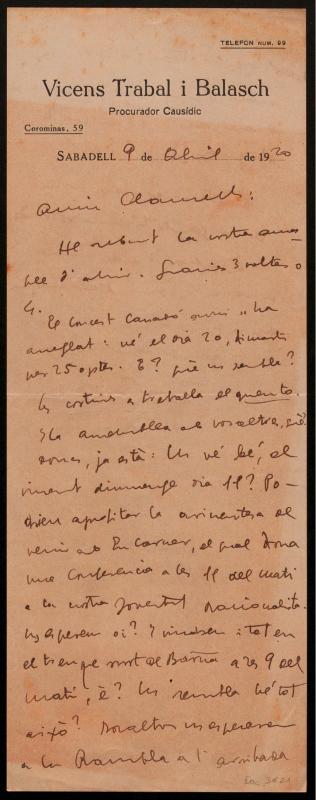 TELEFON NUM. 99
Vicens Trabal i Balasch
Procurador Causídic
Corominas, 59
SABADELL 9 de Abril de 1920
Amic Clausells:
He rebut la vostra
d'ahir. Gracies 3 voltes o
4.
El concert Canadó ha
arreglat: vé el dia 20, dimarts
per 25 optes. È? què us sembla?
a treballa el
de vosaltres,
dones, ja està: Us vé bé, el
vinent diumenge dia 11? Po-
driem aprofitar la avinentesa de
venir a En Carner, el qual dona
una Conferencia a les 11 del mati
a la nostra Joventut Nacionalista.
Us esperem oi? I tot en
el tren que surt de Barna a les 9 del
matí, è? Us sembla bé tot
això? Nosaltres us esperarem
a la Rambla a l'arribada